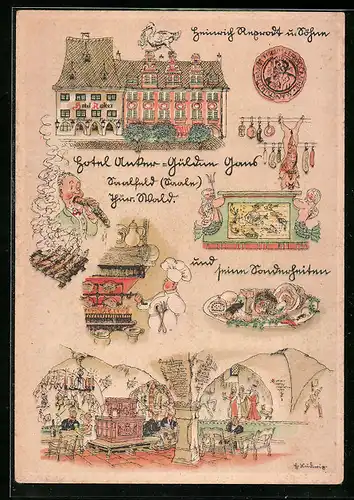 Heinrich Reprodt u. Söhne
Hotel Anker
Hotel Anker = Güldne Gans
Saalfeld (Saale)
Thür. Wald.
und seine Sonderheiten